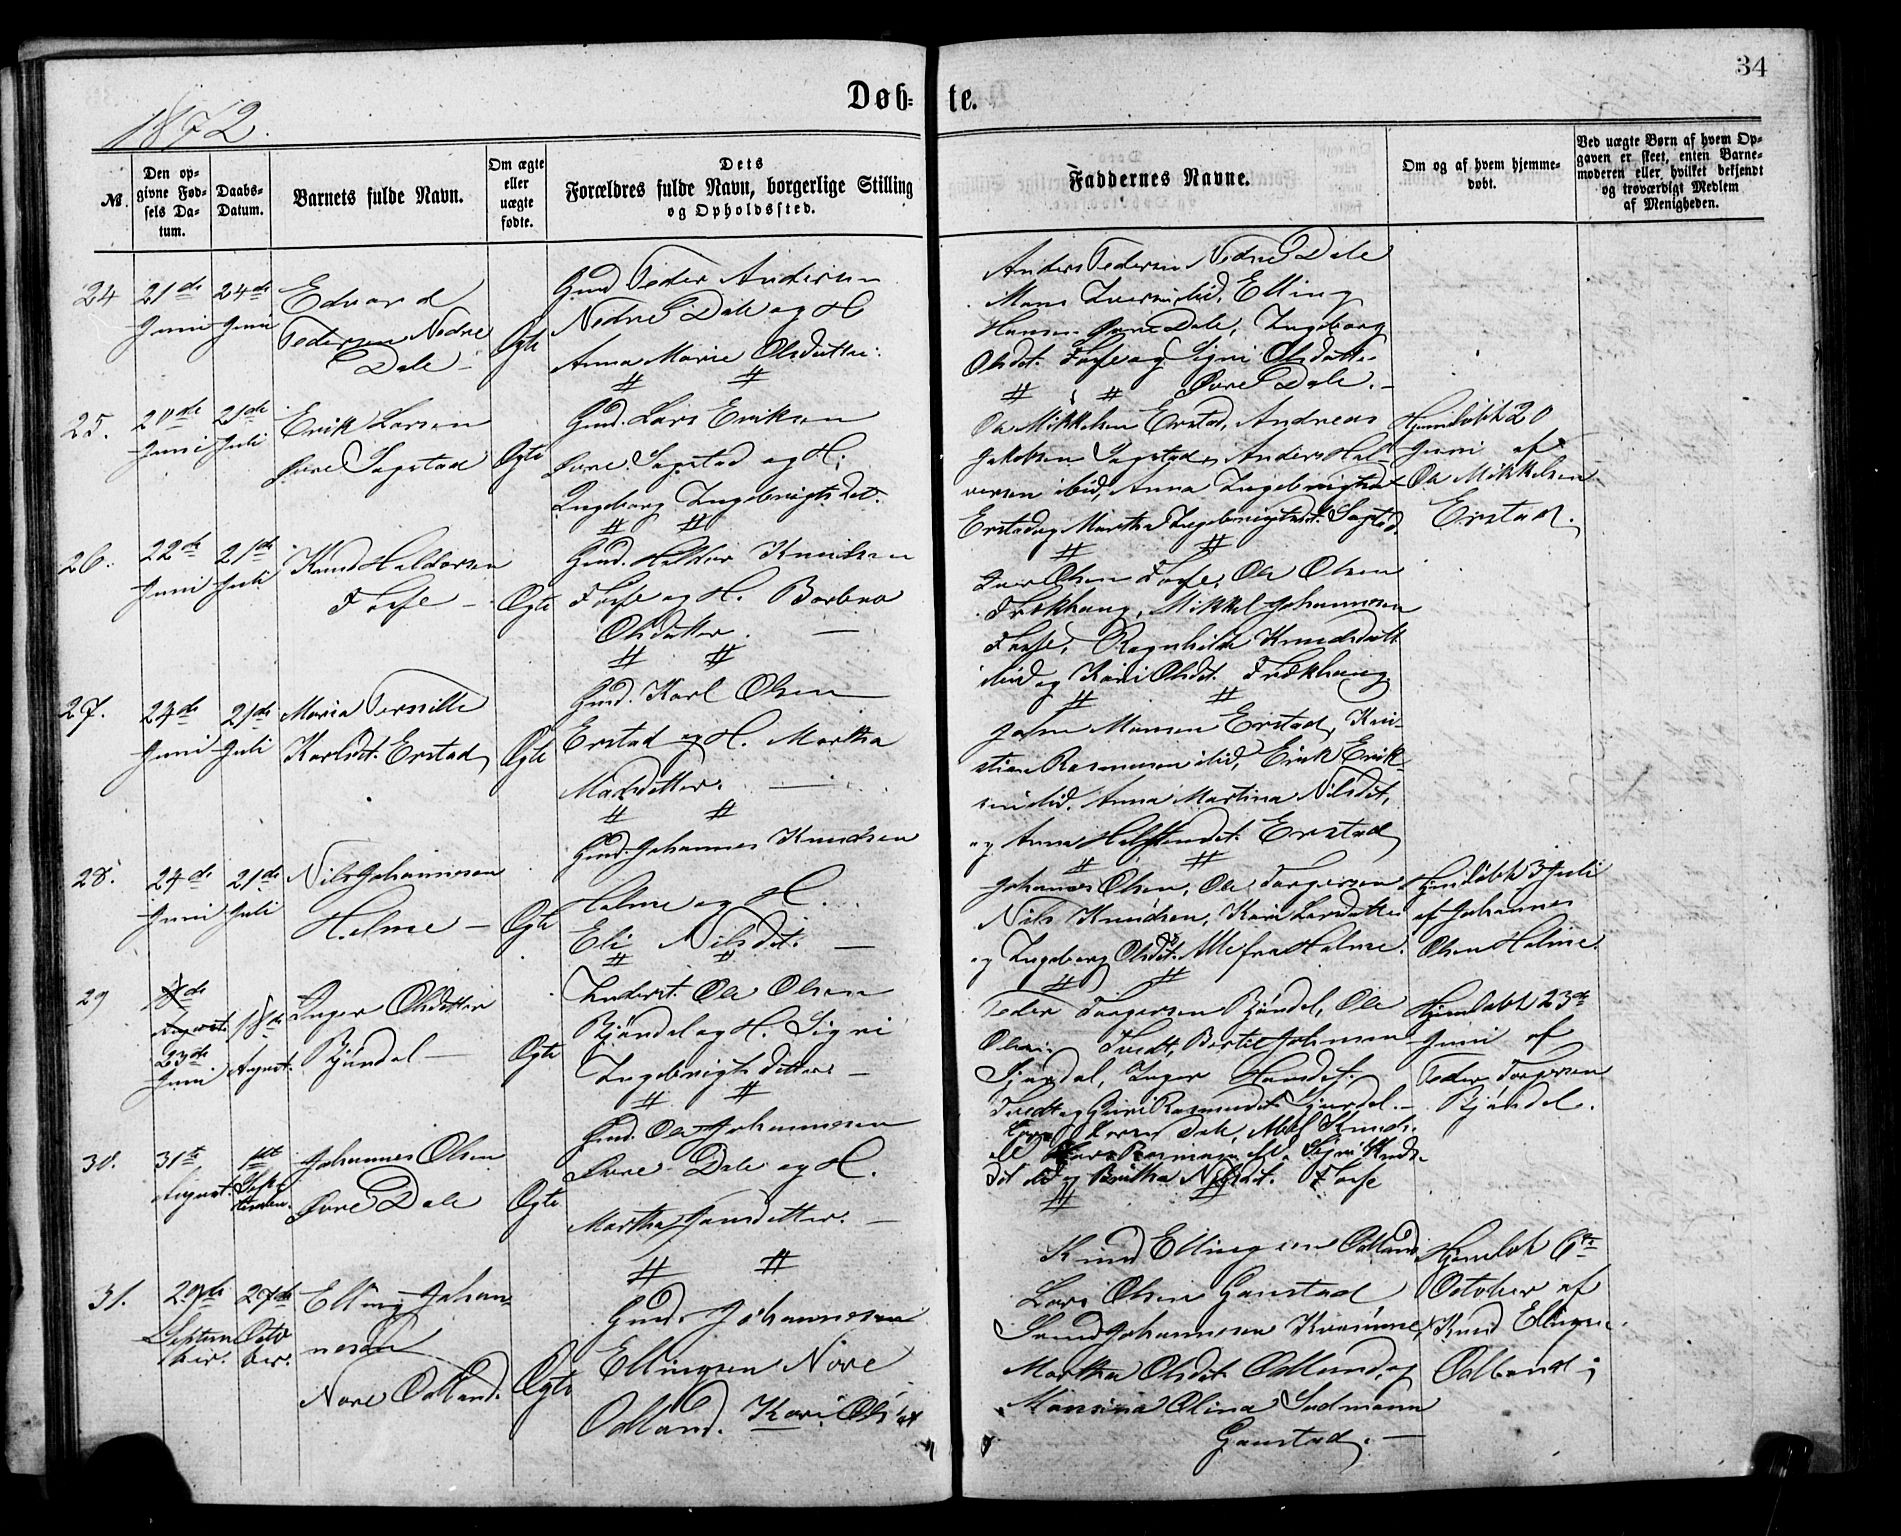 34
1872.
Døb-te.
№
Den opgivne Fødsels Datum.
Daabs-Datum.
Barnets fulde Navn.
Om ægte eller uægte fødte.
Dets Forældres fulde Navn, borgerlige Stilling og Opholdssted.
Faddernes Navne.
Om og af hvem hjemmedøbt.
Ved uægte Børn af hvem Opgaven er skeet, enten Barnemoderen eller hvilket bekjendt og troværdigt Medlem af Menigheden.
24 21de Juni 24de Juni
Edvard
Pedersen Nedre
Dale
Ægte
Gmd Peder Andersen
Nedre Dale og H
Anna Marie Olsdatter.
Anders Pedersen Nedre Dale
Mons Iversen ibid, Elling
Hansen Øvre Dale, Ingeborg
Olsdt. Fosse og Signi Olsdatter
Øvre Dale.
25. 20de Juni 21de Juli
Erik Larsen
Øvre Sagstad
Ægte
Gmd. Lars Eriksen
Øvre Sagstad og H.
Ingeborg Ingebrigtsdt.
Ole Mikkelsen Erstad, Andreas
Jakobsen Sagstad, Anders Hal
vorsen ibid, Anna Ingebrigtsdt
Erstad og Martha Ingebrigtsdt. Sagstad
Hjemdøbt 20
Juni af
Ole Mikkelsen
Erstad.
26. 22de Juni 21de Juli
Knud Haldorsen
Fosse
Ægte
Gmd. Haldor Knudsen
Fosse og H. Barbra
Olsdatter.
Iver Olsen Fosse, Ole Olsen
Frækhaug, Mikkel Johannesen
Fosse, Ragnhilde Knudsdatt
ibid og Kari Olsdt. Frækhaug
27. 23de Juni 21de Juli
Maria Pernille
Karlsdt. Erstad
Ægte
Gmd. Karl Olsen
Erstad og H. Martha
Madsdatter.
John Monsen Erstad, Kri
stian Rasmussen ibid, Erik Erik
sen ibid. Anna Martina Nilsdt,
og Anna Erstad
28. 24de Juni 21de Juli
Nils Johannesen
Helme
Ægte
Gmd. Johannes Knudsen
Helme og H.
Eli Nilsdt.
Johannes Olsen, Ole Torgersen
Nils Knudsen, Kari Larsdatter
og Ingeborg Olsdt. Alle fra Helme.
Hjemdøbt 3 Juli
af Johannes
Olsen Helme.
29 August. 23de Juni 18de August.
Inger Olsdatter
Bjøndal
Ægte
Inderst. Ole Olsen
Bjøndal og H. Signi
Ingebrigtsdatter
Peder Torgersen Bjøndal, Ole
Olsen Tvedt, Bertel Johnsen
Bjøndal, Inger Hansdt.
Tvedt og Guri Rasmusdt.
Hjemdøbt 23de
Juni af
Peder Torgersen
Bjøndal.
30. 31te August. 1ste September.
Johannes Olsen
Øvre Dale
Ægte
Gmd. Ole Johannesen
Øvre Dale og H.
Martha Jansdatter.
Larsen Dale,
ibid og Brittha Nilsdt. Fosse
31. 29de September. 27de October.
Elling Johan
nesen
Nore Odland.
Ægte
Gmd. Johannesen
Ellingsen Nore
Odland. Kari Olsdt
Knud Ellingsen Odland
Lars Olsen Gaustad
Johannesen
Martha Olsdt Odland og
Monsina Olina Sudmann
Gaustad.
Hjemdøbt 6te
October af
Knud Ellingsen
Odland